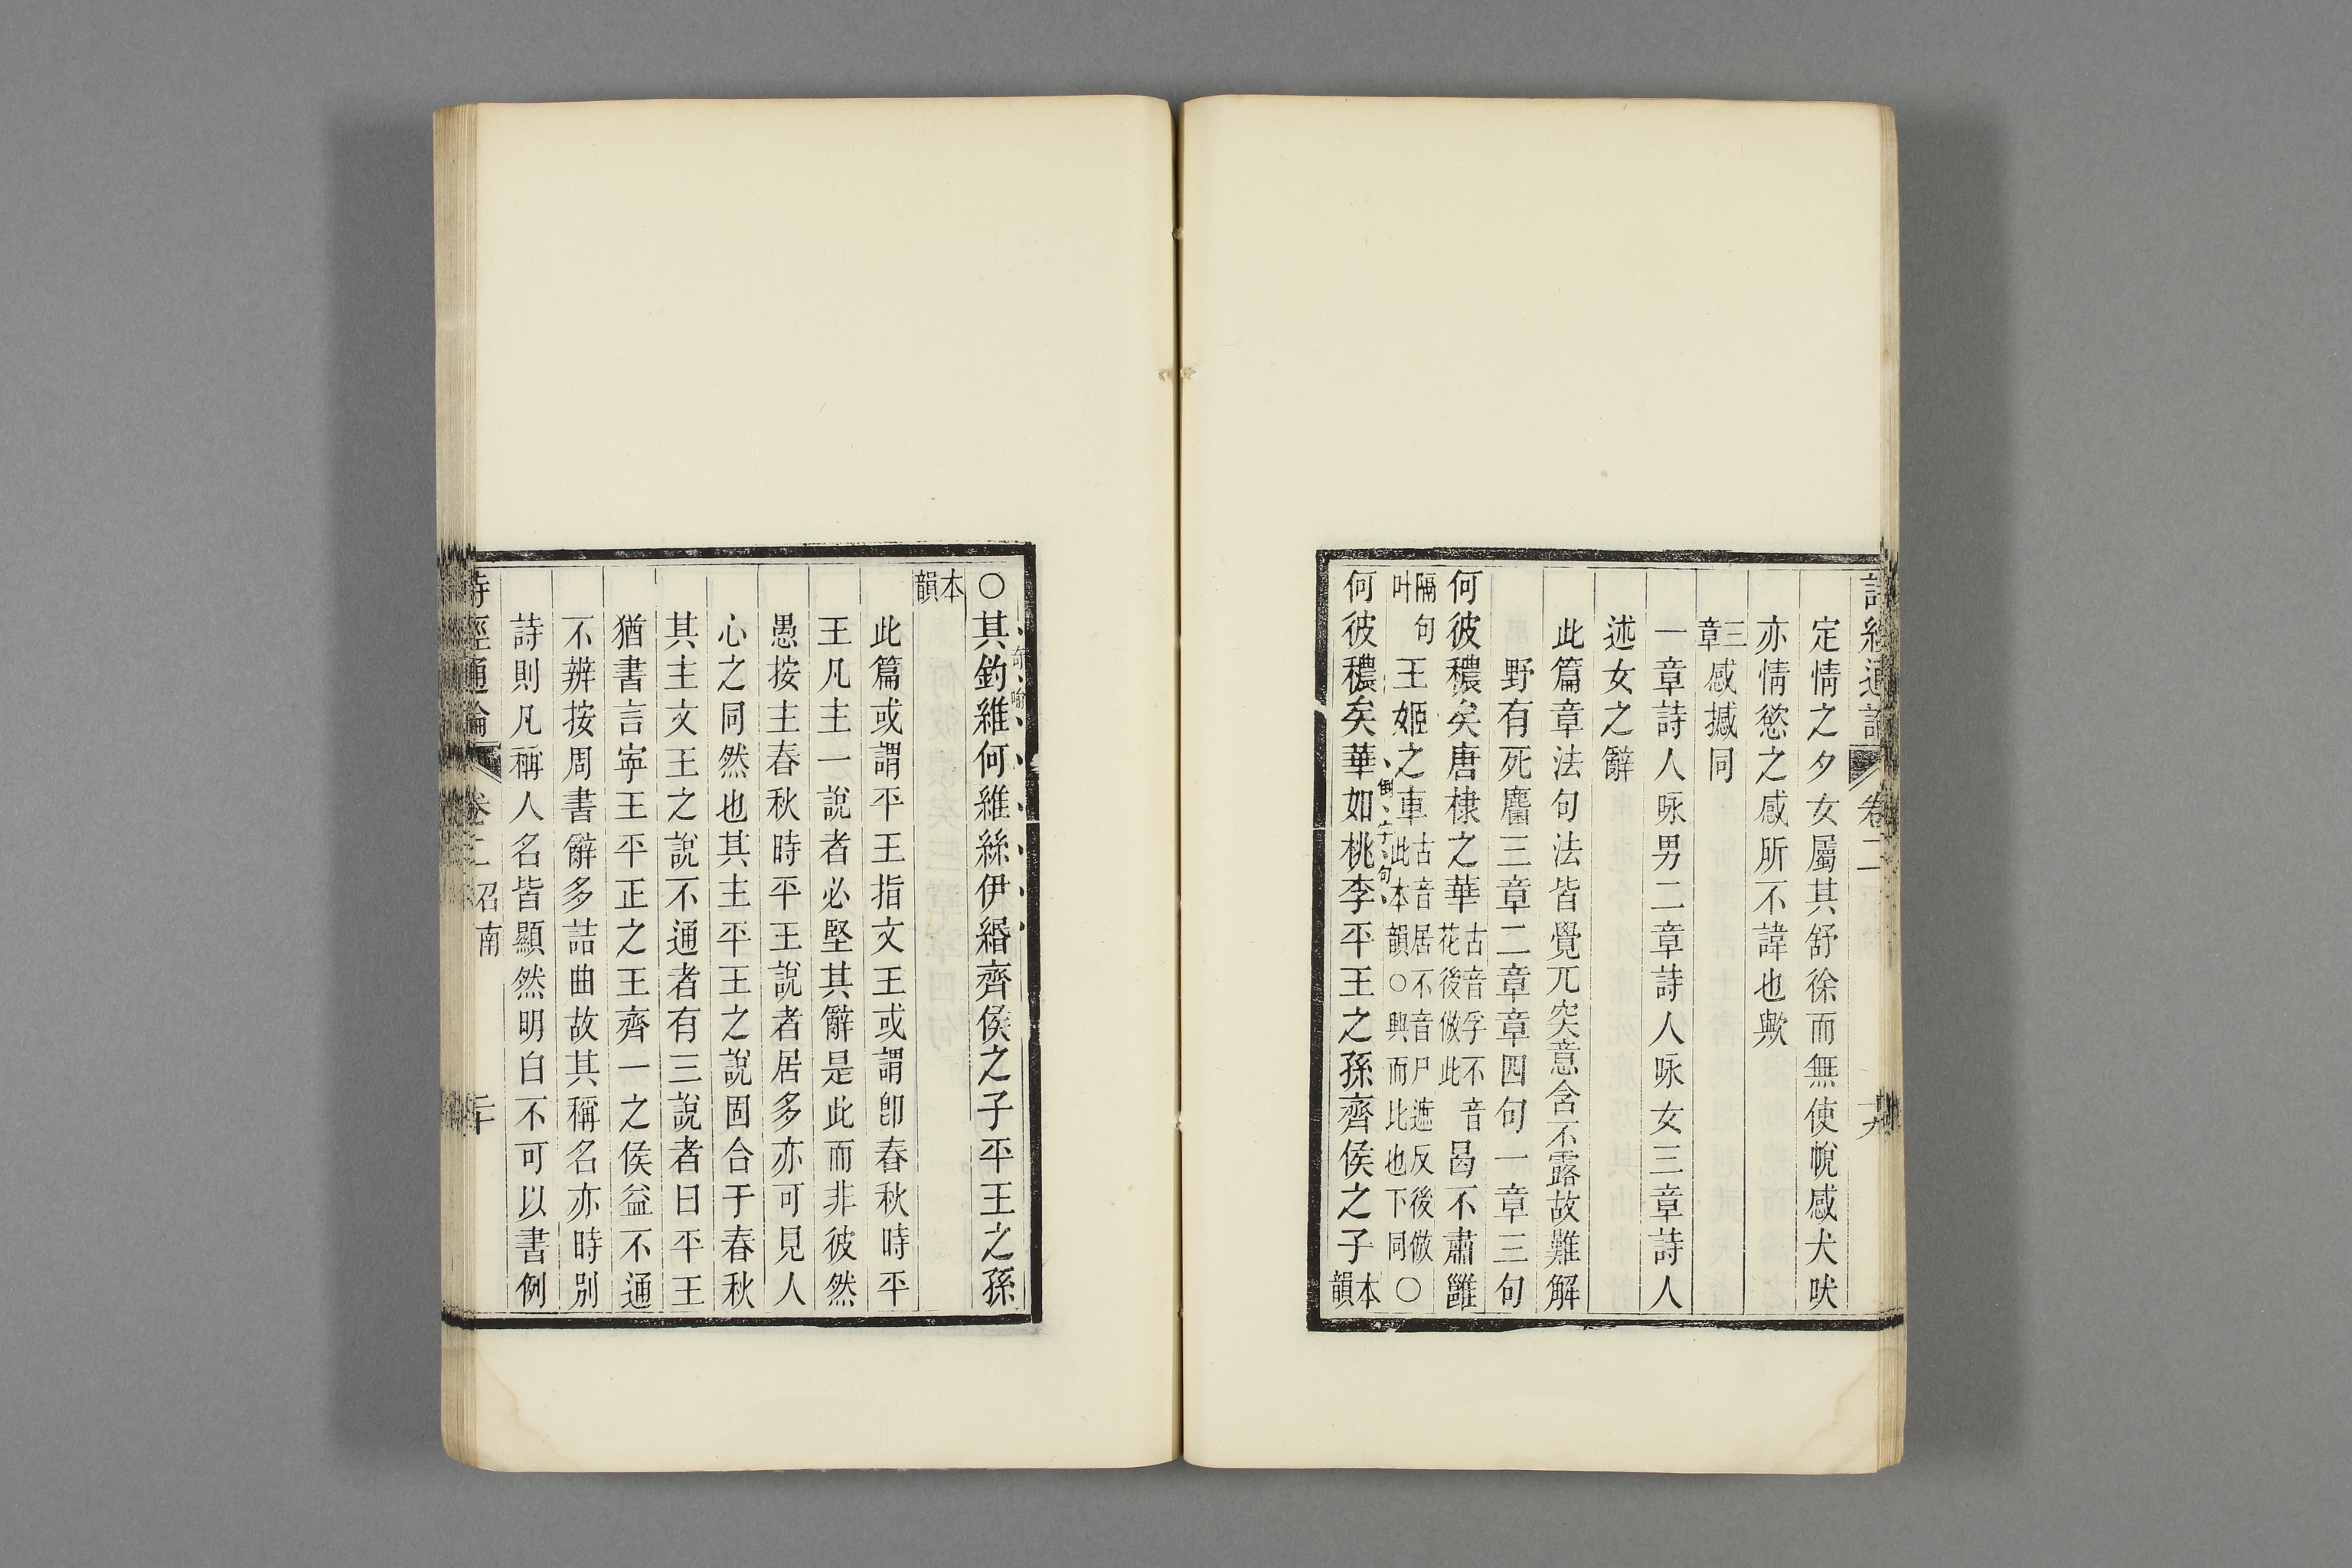 詩經通論 卷二 十九
定情之夕女屬其舒徐而無使帨感犬吠
亦情慾之感所不諱也歟
三章感撼同
一章詩人咏男二章詩人咏女三章詩人
述女之辭
此篇章法句法皆覺兀突意含不露故難解
野有死麕三章二章章四句一章三句
何彼穠矣唐棣之華古音孚不音花後倣此曷不肅雝
隔句叶王姬之車古音居不音尺遮反後倣此本韻○興而比也下同○
何彼穠矣華如桃李平王之孫齊侯之子本韻
倒字句
○其釣維何維絲伊緡齊侯之子平王之孫
奇喻
本韻
此篇或謂平王指文王或謂卽春秋時平
王凡主一說者必堅其辭是此而非彼然
愚按主春秋時平王說者居多亦可見人
心之同然也其主平王之說固合于春秋
其主文王之說不通者有三說者曰平王
猶書言寧王平正之王齊一之侯益不通
不辨按周書辭多詰曲故其稱名亦時別
詩則凡稱人名皆顯然明白不可以書例
詩經通論 卷二召南 二十